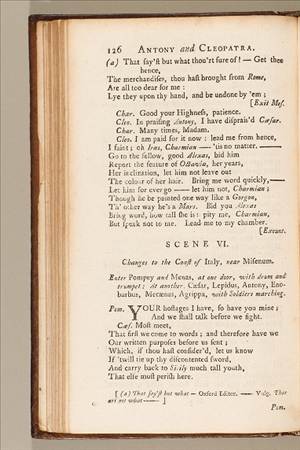 126 ANTONY and CLEOPATRA.
(a) That say'ſt but what thou'rt ſure of! — Get thee
hence,
The merchandiſes, thou haſt brought from Rome,
Are all too dear for me:
Lye they upon thy hand, and be undone by 'em;
[Exit Meſ.
Char. Good your Highneſs, patience.
Cleo. In praiſing Antony, I have diſprais'd Cæſar.
Char. Many times, Madam.
Cleo. I am paid for it now: lead me from hence,
I faint; oh Iras, Charmian — 'tis no matter. —
Go to the fellow, good Alexas, bid him
Report the feature of Octavia, her years,
Her inclination, let him not leave out
The colour of her hair. Bring me word quickly, —
Let him for ever go — let him not, Charmian;
Though he be painted one way like a Gorgon,
Th' other way he's a Mars. Bid you Alexas
Bring word, how tall ſhe is: pity me, Charmian,
But ſpeak not to me. Lead me to my chamber.
[Exeunt.
SCENE VI.
Changes to the Coaſt of Italy, near Miſenum.
Enter Pompey and Menas, at one door, with drum and
trumpet: At another Cæſar, Lepidus, Antony, Eno-
barbus, Mecænas, Agrippa, with Soldiers marching.
Pom. YOUR hoſtages I have, ſo have you mine;
And we ſhall talk before we fight.
Cæſ. Moſt meet,
That firſt we come to words; and therefore have we
Our written purpoſes before us ſent;
Which, if thou haſt conſider'd, let us know
If 'twill tie up thy diſcontented ſword,
And carry back to Sicily much tall youth,
That elſe muſt periſh here.
[(a) That ſay'ſt but what — Oxford Editor. — Vulg. That
art not what — ]
Pom.